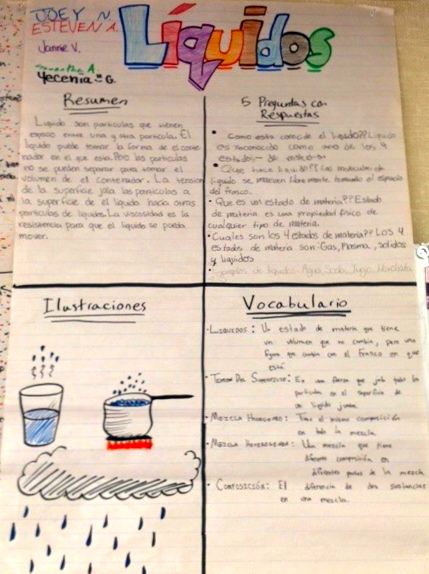 JOEY N.
ESTEVEN A.
Jannie V.
Samantha A.
Yecenia G.
Líquidos
Resumen
Liquido son particulas que tienen
espacio entre una y otra particula. El
liquido puede tomar la forma de el conte
nador en el que esta. Pero las particulas
no se pueden separar para tomar el
volumen de el contenador. La tension
de la superficie jala las particulas a
la superficie de el liquido hacia otras
particulas de liquidos. La viscosidad es la
resistencia para que el liquido se pueda
mover.
5 Preguntas con
Respuestas
• Como esta conocido el liquido?? Liquido
es reconocido como uno de los 4
estados de materia
Que hace liquido?? Las moleculas de
liquido se mueven libremente tomando el espacio
del frasco.
• Que es un estado de materia?? Estado
de materia es una propiedad fisica de
cualquier tipo de materia.
• Cuales son los 4 estados de materia?? LOS 4
estados de materia son-Gas, Plasma, solidos
y liquidos
• Ejemplos de liquidos: Agua, Soda, Jugo, Horchata
Ilustraciones
Vocabulario
• LIQUIDOS: Un estado de materia que tiene
un volumen que no cambia, pero una
figura que cambia con el frasco en que
está
• TENSION DEL SUPERFICIE: Es una fuerza que jala todas las
particulas en el superficie de
un liquido juntas.
• MEZCLA HOMOGENEO: Tiene el mismo composición
en toda la mezcla.
• MEZCLA HETEROGENEA: Una mezcla que tiene
diferente composición en
diferentes partes de la mezcla.
• COMPOSICIÓN: El diferencia de dos sustancias
en una mezcla.